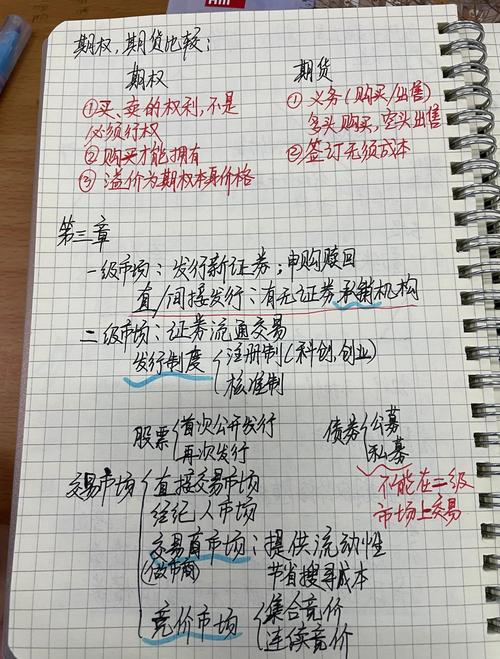 期权,期货比较:
期权 期货
①买、卖的权利,不是 ①义务(购买/出售)
必须行权 多头购买,空头出售
②购买才能拥有 ②签订无须成本
③溢价为期权本身价格
第三章
一级市场:发行新证券;申购赎回
直/间接发行:有无证券承销机构
二级市场:证券流通交易
发行制度{注册制(科创,创业)
核准制
股票{首次公开发行 债券{公募
再次发行 私募
不能在二级
市场上交易
交易市场{直接交易市场
经纪人市场
交易商市场:提供流动性
(做市商) 节省搜寻成本
竞价市场{集合竞价
连续竞价